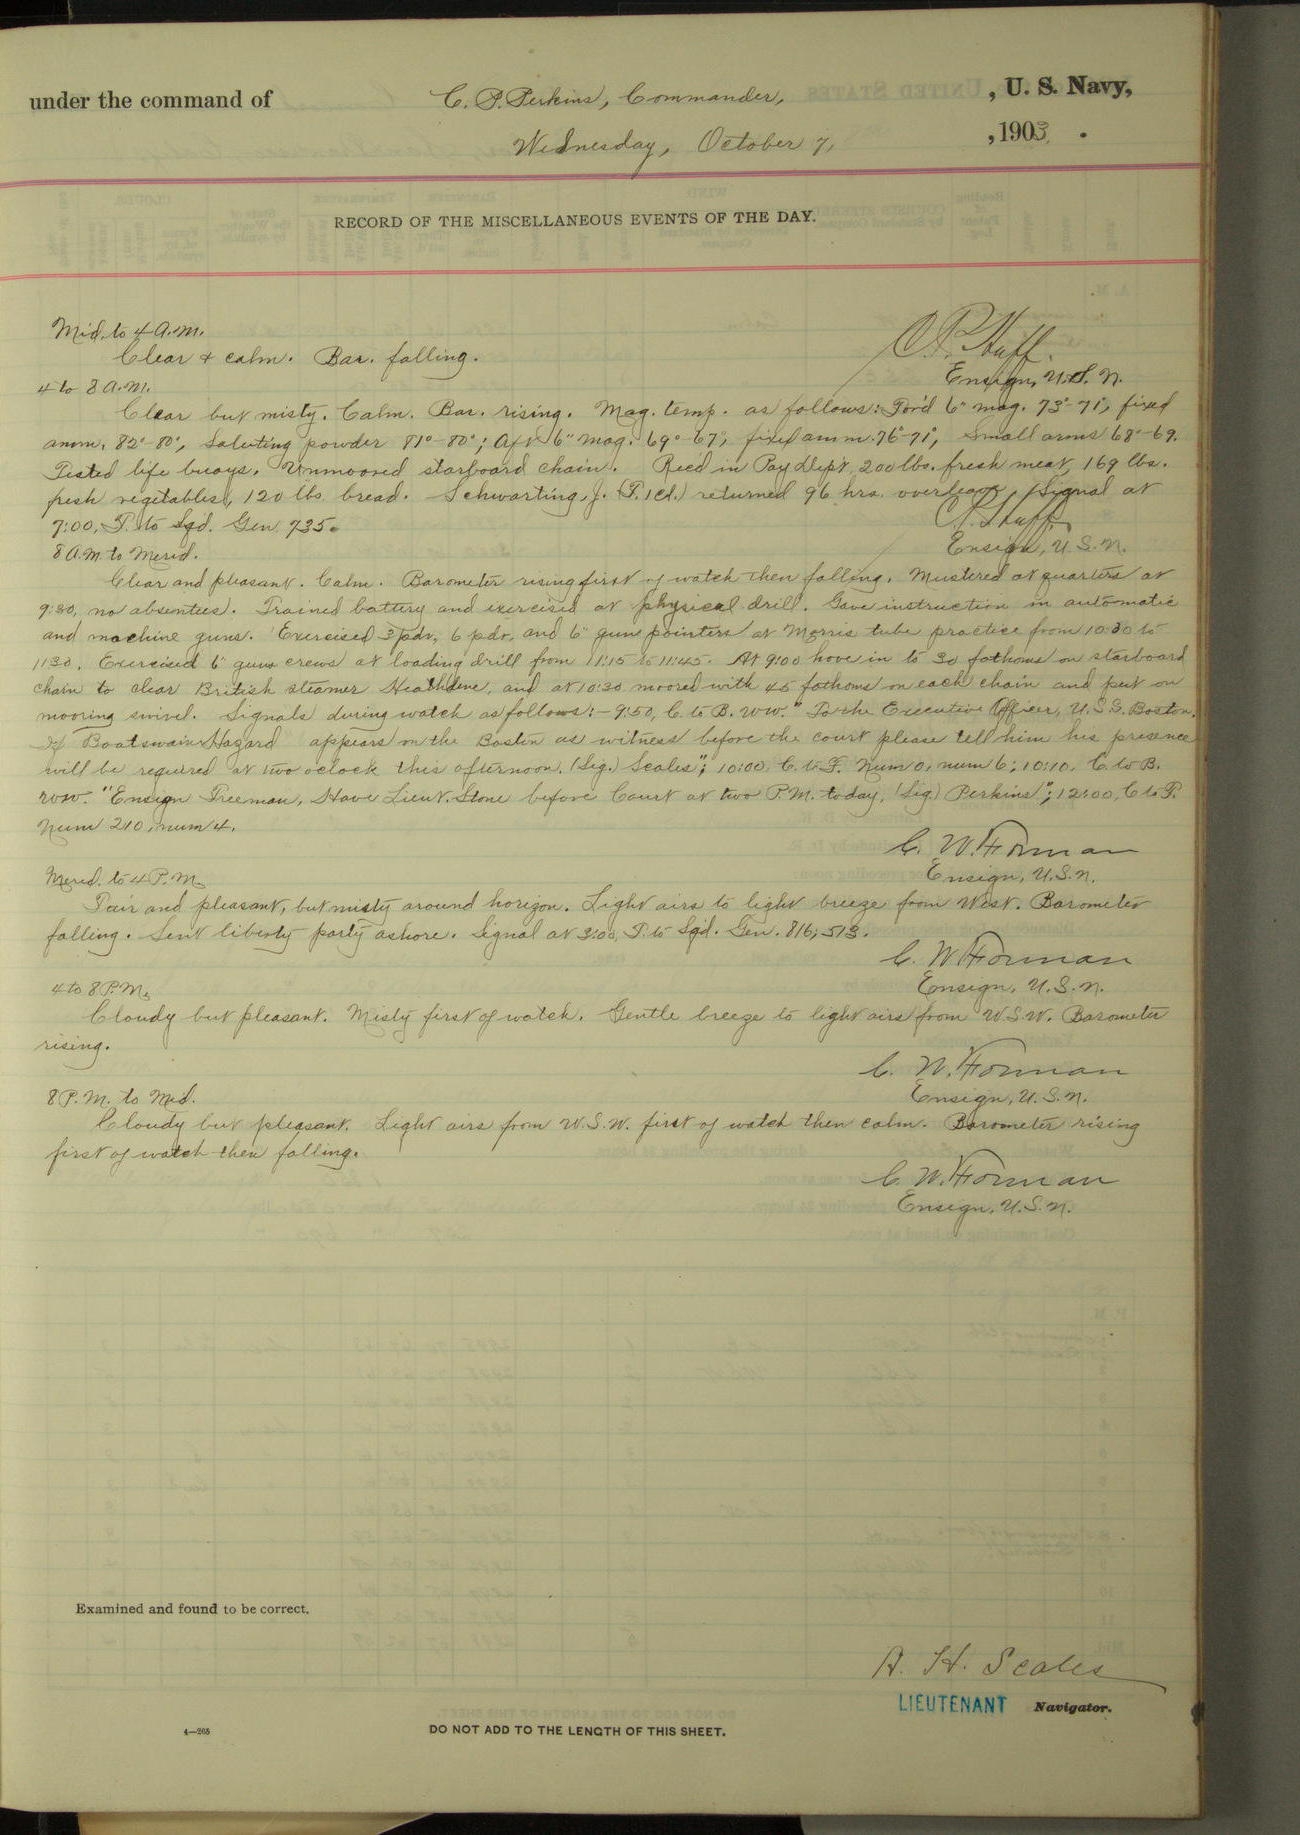 under the command of C. P. Perkins, Commander, , U. S. Navy,
Wednesday, October 7, , 1903 .
RECORD OF THE MISCELLANEOUS EVENTS OF THE DAY.
Mid. to 4 A.M.
Clear & calm. Bar. falling.
C. P. Huff.
Ensign, U.S.N.
4 to 8 A.M.
Clear but misty. Calm. Bar. rising. Mag. temp. as follows: For'd 6" mag. 73°-71°, fixed
amm. 82°-80°, Saluting powder 81°-80°; Aft 6" mag. 69°-67°, fixed amm. 76°-71°, Small arms 68°-69.
Tested life buoys. Unmoored starboard chain. Rec'd in Pay Dept. 200 lbs. fresh meat, 169 lbs.
fresh vegetables, 120 lbs. bread. Schwarting, J. (P. 1cl.) returned 96 hrs. overleave. Signal at
7:00, P. to Sqd. Gen. 735.
C. P. Huff.
Ensign, U.S.N.
8 A.M. to Merid.
Clear and pleasant. Calm. Barometer rising first of watch then falling. Mustered at quarters at
9:30, no absentees. Trained battery and exercised at physical drill. Gave instruction in automatic
and machine guns. Exercised 3 pdr, 6 pdr, and 6" gun pointers at Morris tube practice from 10:30 to
11:30. Exercised 6" guns crews at loading drill from 11:15 to 11:45. At 9:00 hove in to 30 fathoms on starboard
chain to clear British steamer Heathdene, and at 10:30 moored with 45 fathoms on each chain and put on
mooring swivel. Signals during watch as follows:- 9:50, C. to B. ww. "To the Executive Officer, U.S.S. Boston.
If Boatswain Hazard appears on the Boston as witness before the court please tell him his presence
will be required at two oclock this afternoon. (Sig.) Scales"; 10:00, C. to P. Num 0, num 6; 10:10, C. to B.
ww. "Ensign Freeman, Have Lieut. Stone before Court at two P.M. today. (Sig) Perkins"; 12:00, C to P.
Num 210, num 4.
C. W. Forman
Ensign, U.S.N.
Merid. to 4 P.M.
Fair and pleasant, but misty around horizon. Light airs to light breeze from West. Barometer
falling. Sent liberty party ashore. Signal at 3:00, P. to Sqd. Gen. 816, 513.
C. W. Forman
Ensign, U.S.N.
4 to 8 P.M.
Cloudy but pleasant. Misty first of watch. Gentle breeze to light airs from W.S.W. Barometer
rising.
C. W. Forman
Ensign, U.S.N.
8 P.M. to Mid.
Cloudy but pleasant. Light airs from W.S.W. first of watch then calm. Barometer rising
first of watch then falling.
C. W. Forman
Ensign, U.S.N.
Examined and found to be correct.
A. H. Scales
LIEUTENANT Navigator.
4—265
DO NOT ADD TO THE LENGTH OF THIS SHEET.